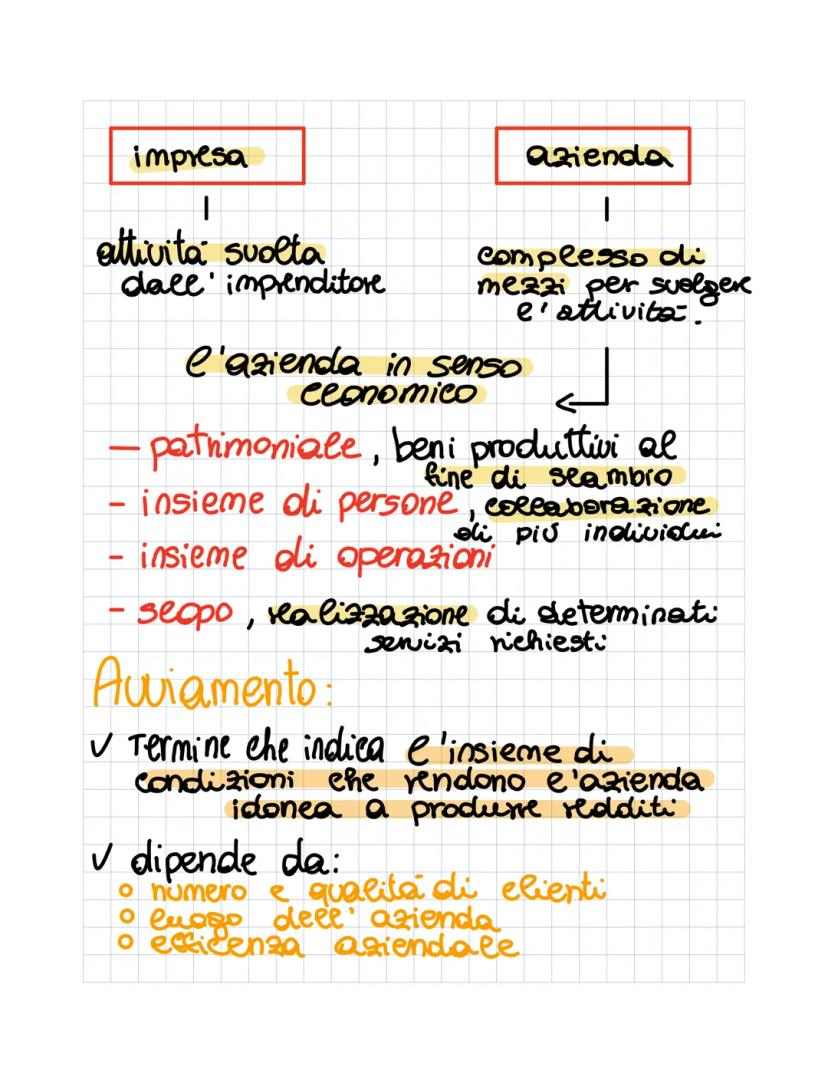 impresa
azienda
attività svolta
dall'imprenditore
complesso di
mezzi per svolgere
l'attività.
l'azienda in senso
economico
- patrimoniale, beni produttivi al
fine di scambro
- insieme di persone, collaborazione
di più individui
- insieme di operazioni
- scopo, realizzazione di determinati
servizi richiesti
Avviamento:
✓ Termine che indica l'insieme di
condizioni che rendono l'azienda
idonea a produrre redditi
✓ dipende da:
○ numero e qualità di clienti
○ luogo dell'azienda
○ efficenza aziendale